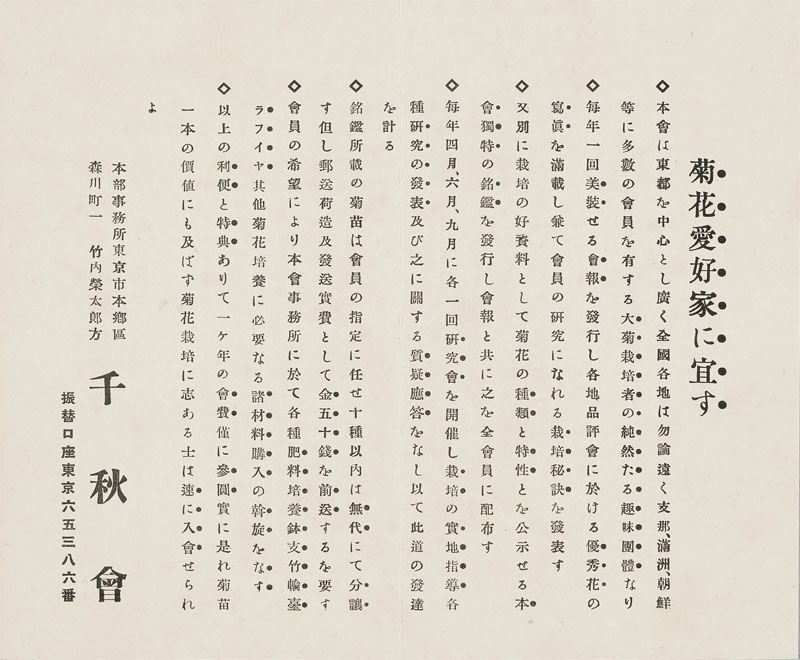 菊花愛好家に宜す
◇本會は東都を中心とし廣く全國各地は勿論遠く支那、滿洲、朝鮮
等に多數の會員を有する大菊栽培者の純然たる趣味團體なり
◇每年一回美裝せる會報を發行し各地品評會に於ける優秀花の
寫眞を滿載し兼て會員の研究になれる栽培秘訣を發表す
◇又別に栽培の好資料として菊花の種類と特性とを公示せる本
會獨特の銘鑑を發行し會報と共に之を全會員に配布す
◇每年四月、六月、九月に各一回硏究會を開催し栽培の實地指導各
種硏究の發表及び之に關する質疑應答をなし以て此道の發達
を計る
◇銘鑑所載の菊苗は會員の指定に任せ十種以內は無代にて分讓
す但し郵送荷造及發送實費として金五十錢を前送するを要す
◇會員の希望により本會事務所に於て各種肥料培養鉢支竹輪臺
ラフイヤ其他菊花培養に必要なる諸材料購入の斡旋をなす
◇以上の利便と特典ありて一ケ年の會費僅に參圓實に是れ菊苗
一本の價値にも及ばず菊花栽培に志ある士は速に入會せられ
よ
本部事務所東京市本鄕區
森川町一 竹內榮太郎方
千秋會
振替口座東京六五三八六番